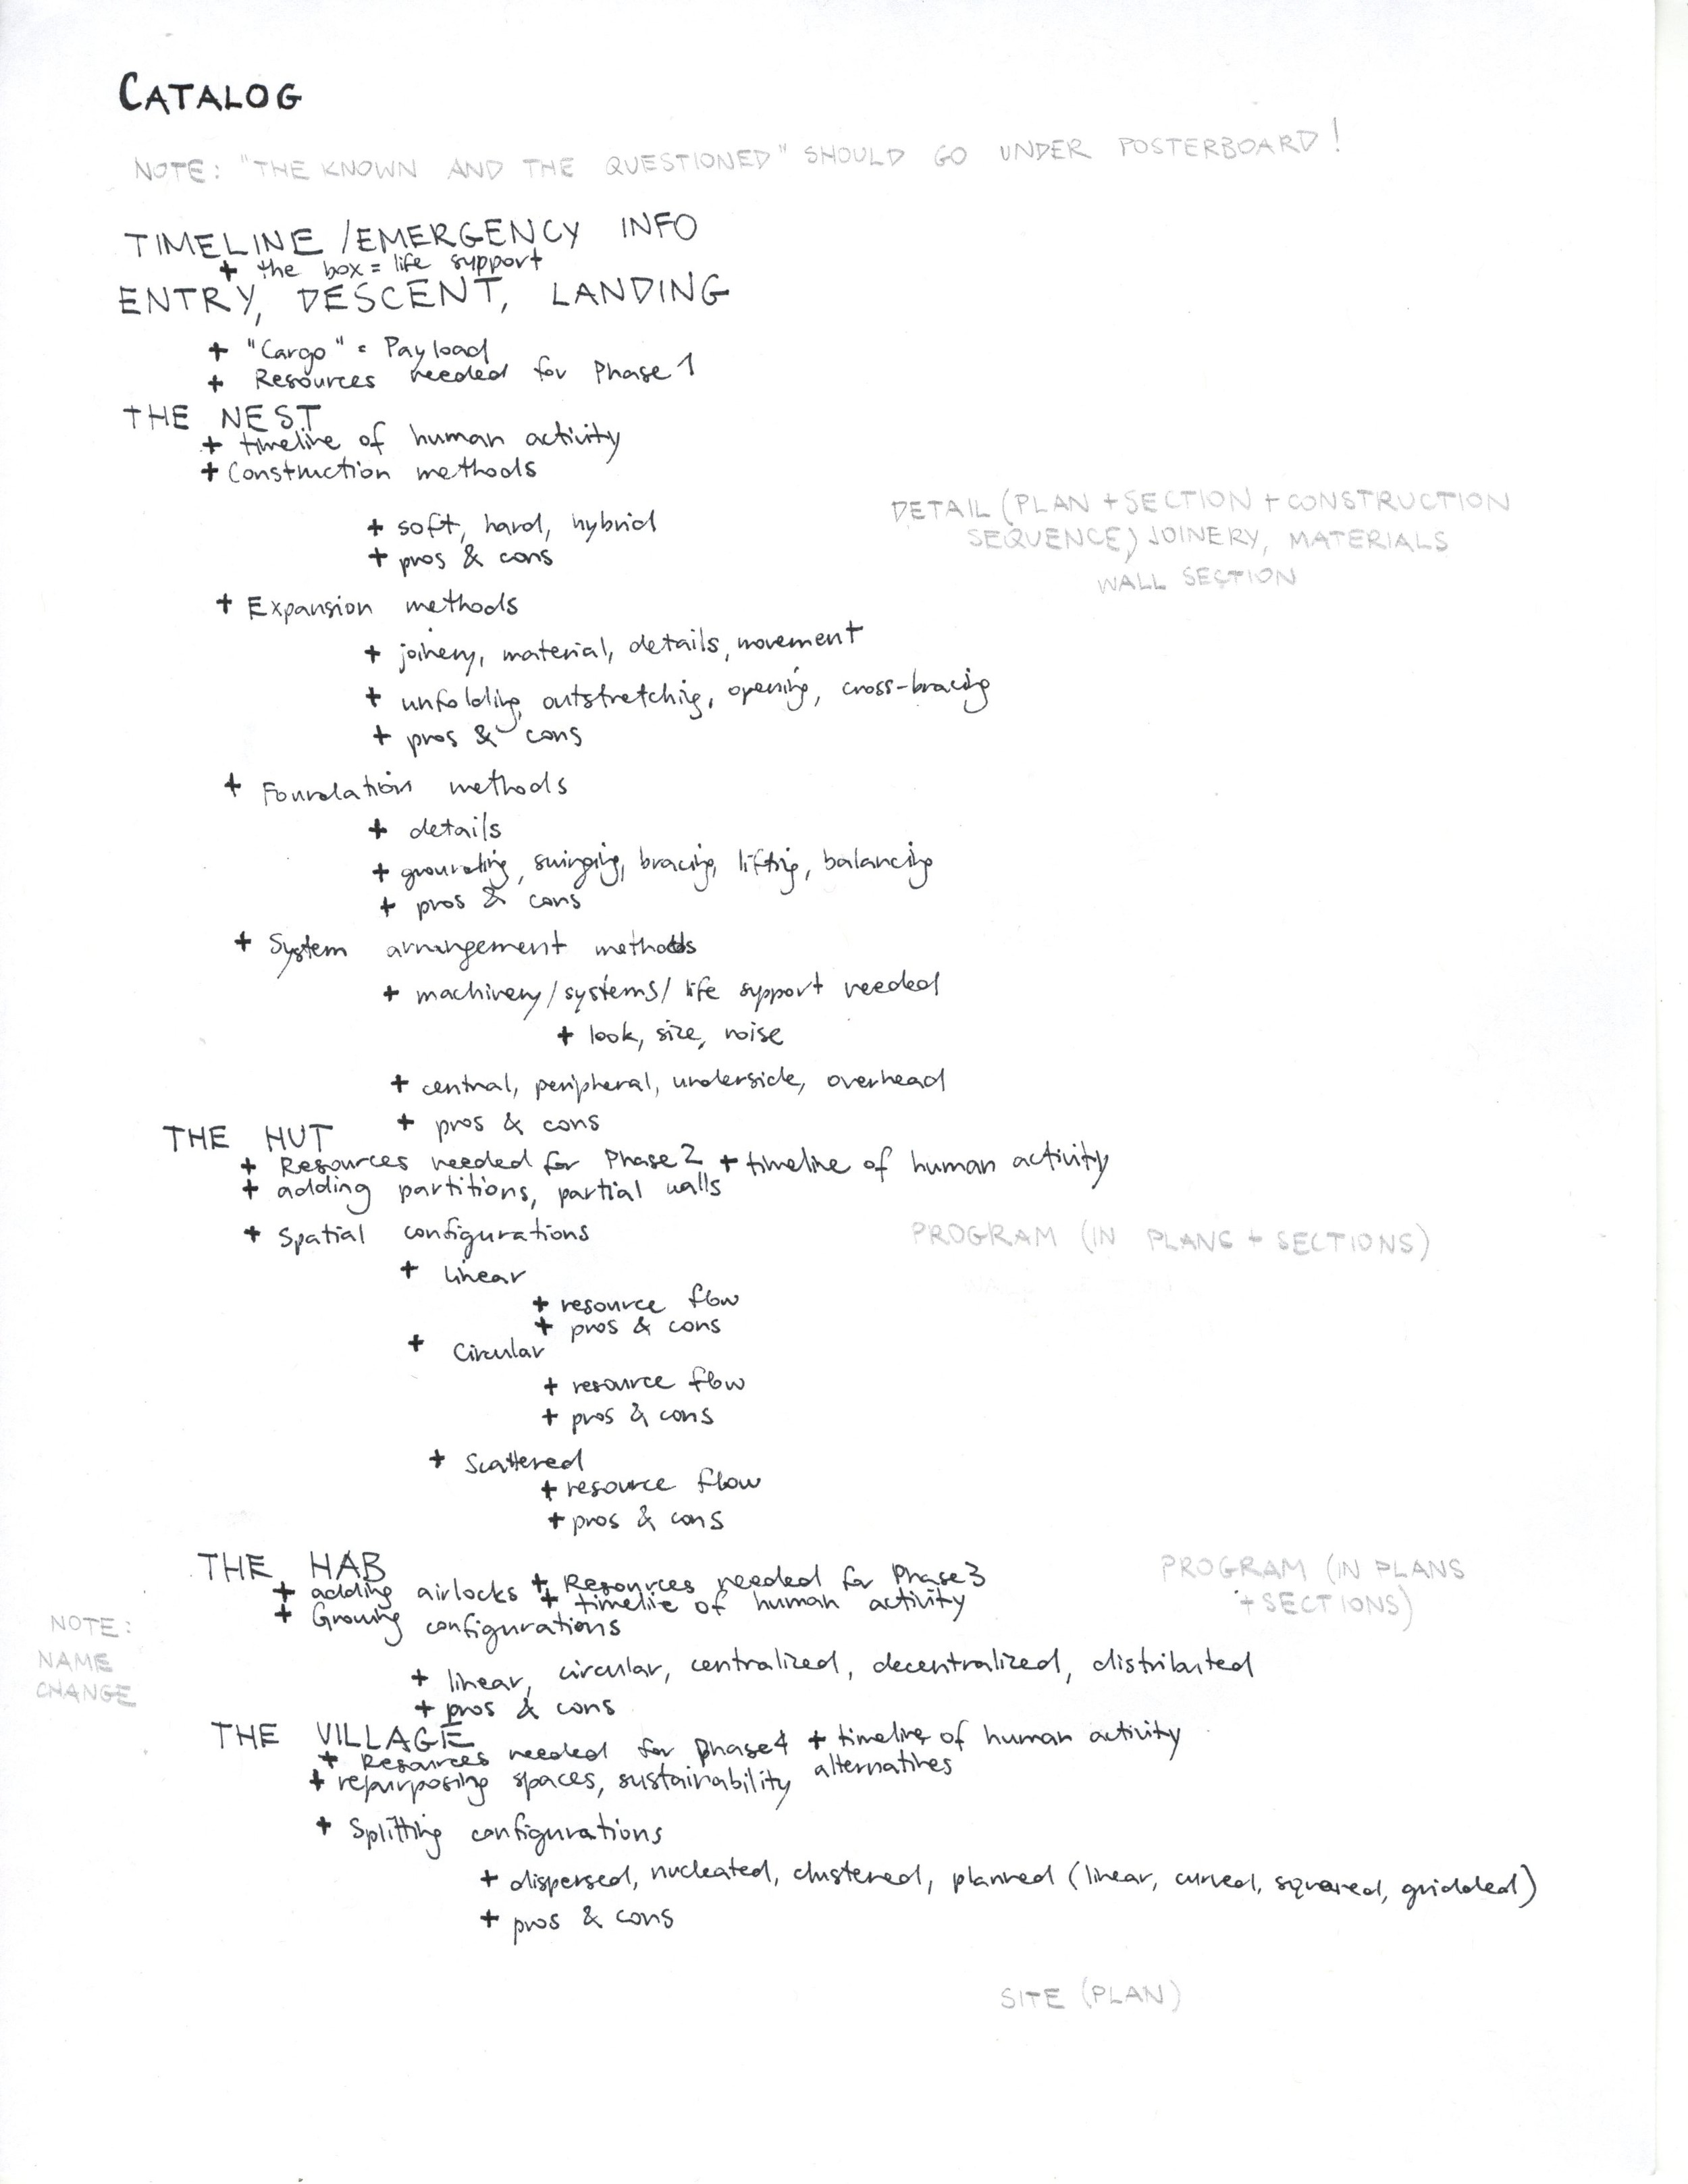 CATALOG
NOTE: "THE KNOWN AND THE QUESTIONED" SHOULD GO UNDER POSTERBOARD!
TIMELINE /EMERGENCY INFO
+ the box = life support
ENTRY, DESCENT, LANDING
+ "Cargo" = Payload
+ Resources needed for Phase 1
THE NEST
+ timeline of human activity
+ Construction methods
+ soft, hard, hybrid
+ pros & cons
DETAIL (PLAN + SECTION + CONSTRUCTION
SEQUENCE) JOINERY, MATERIALS
WALL SECTION
+ Expansion methods
+ joinery, material, details, movement
+ unfolding, outstretching, opening, cross-bracing
+ pros & cons
+ Foundation methods
+ details
+ grounding, swinging, bracing, lifting, balancing
+ pros & cons
+ System arrangement methods
+ machinery/systems/life support needed
+ look, size, noise
+ central, peripheral, underside, overhead
+ pros & cons
THE HUT
+ Resources needed for Phase 2 + timeline of human activity
+ adding partitions, partial walls
+ Spatial configurations
PROGRAM (IN PLANS + SECTIONS)
+ linear
+ resource flow
+ pros & cons
+ Circular
+ resource flow
+ pros & cons
+ Scattered
+ resource flow
+ pros & cons
THE HAB
+ adding airlocks + Resources needed for Phase 3
+ timeline of human activity
+ Growing configurations
PROGRAM (IN PLANS
+ SECTIONS)
NOTE:
NAME
CHANGE
+ linear, circular, centralized, decentralized, distributed
+ pros & cons
THE VILLAGE
+ Resources needed for phase 4 + timeline of human activity
+ repurposing spaces, sustainability alternatives
+ Splitting configurations
+ dispersed, nucleated, clustered, planned (linear, curved, squared, gridded)
+ pros & cons
SITE (PLAN)